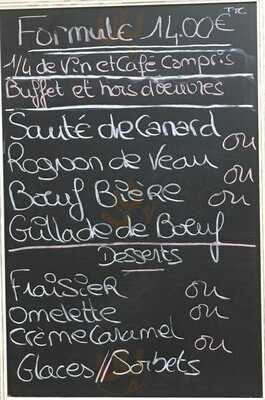 Formule 14.00€ TTC
1/4 de Vin et Café Compris
Buffet et hors d'oeuvres
Sauté de Canard ou
Rognon de Veau ou
Bœuf Bière ou
Grillade de Boeuf
Desserts
Fraisier ou
omelette ou
Crème Caramel ou
Glaces//Sorbets